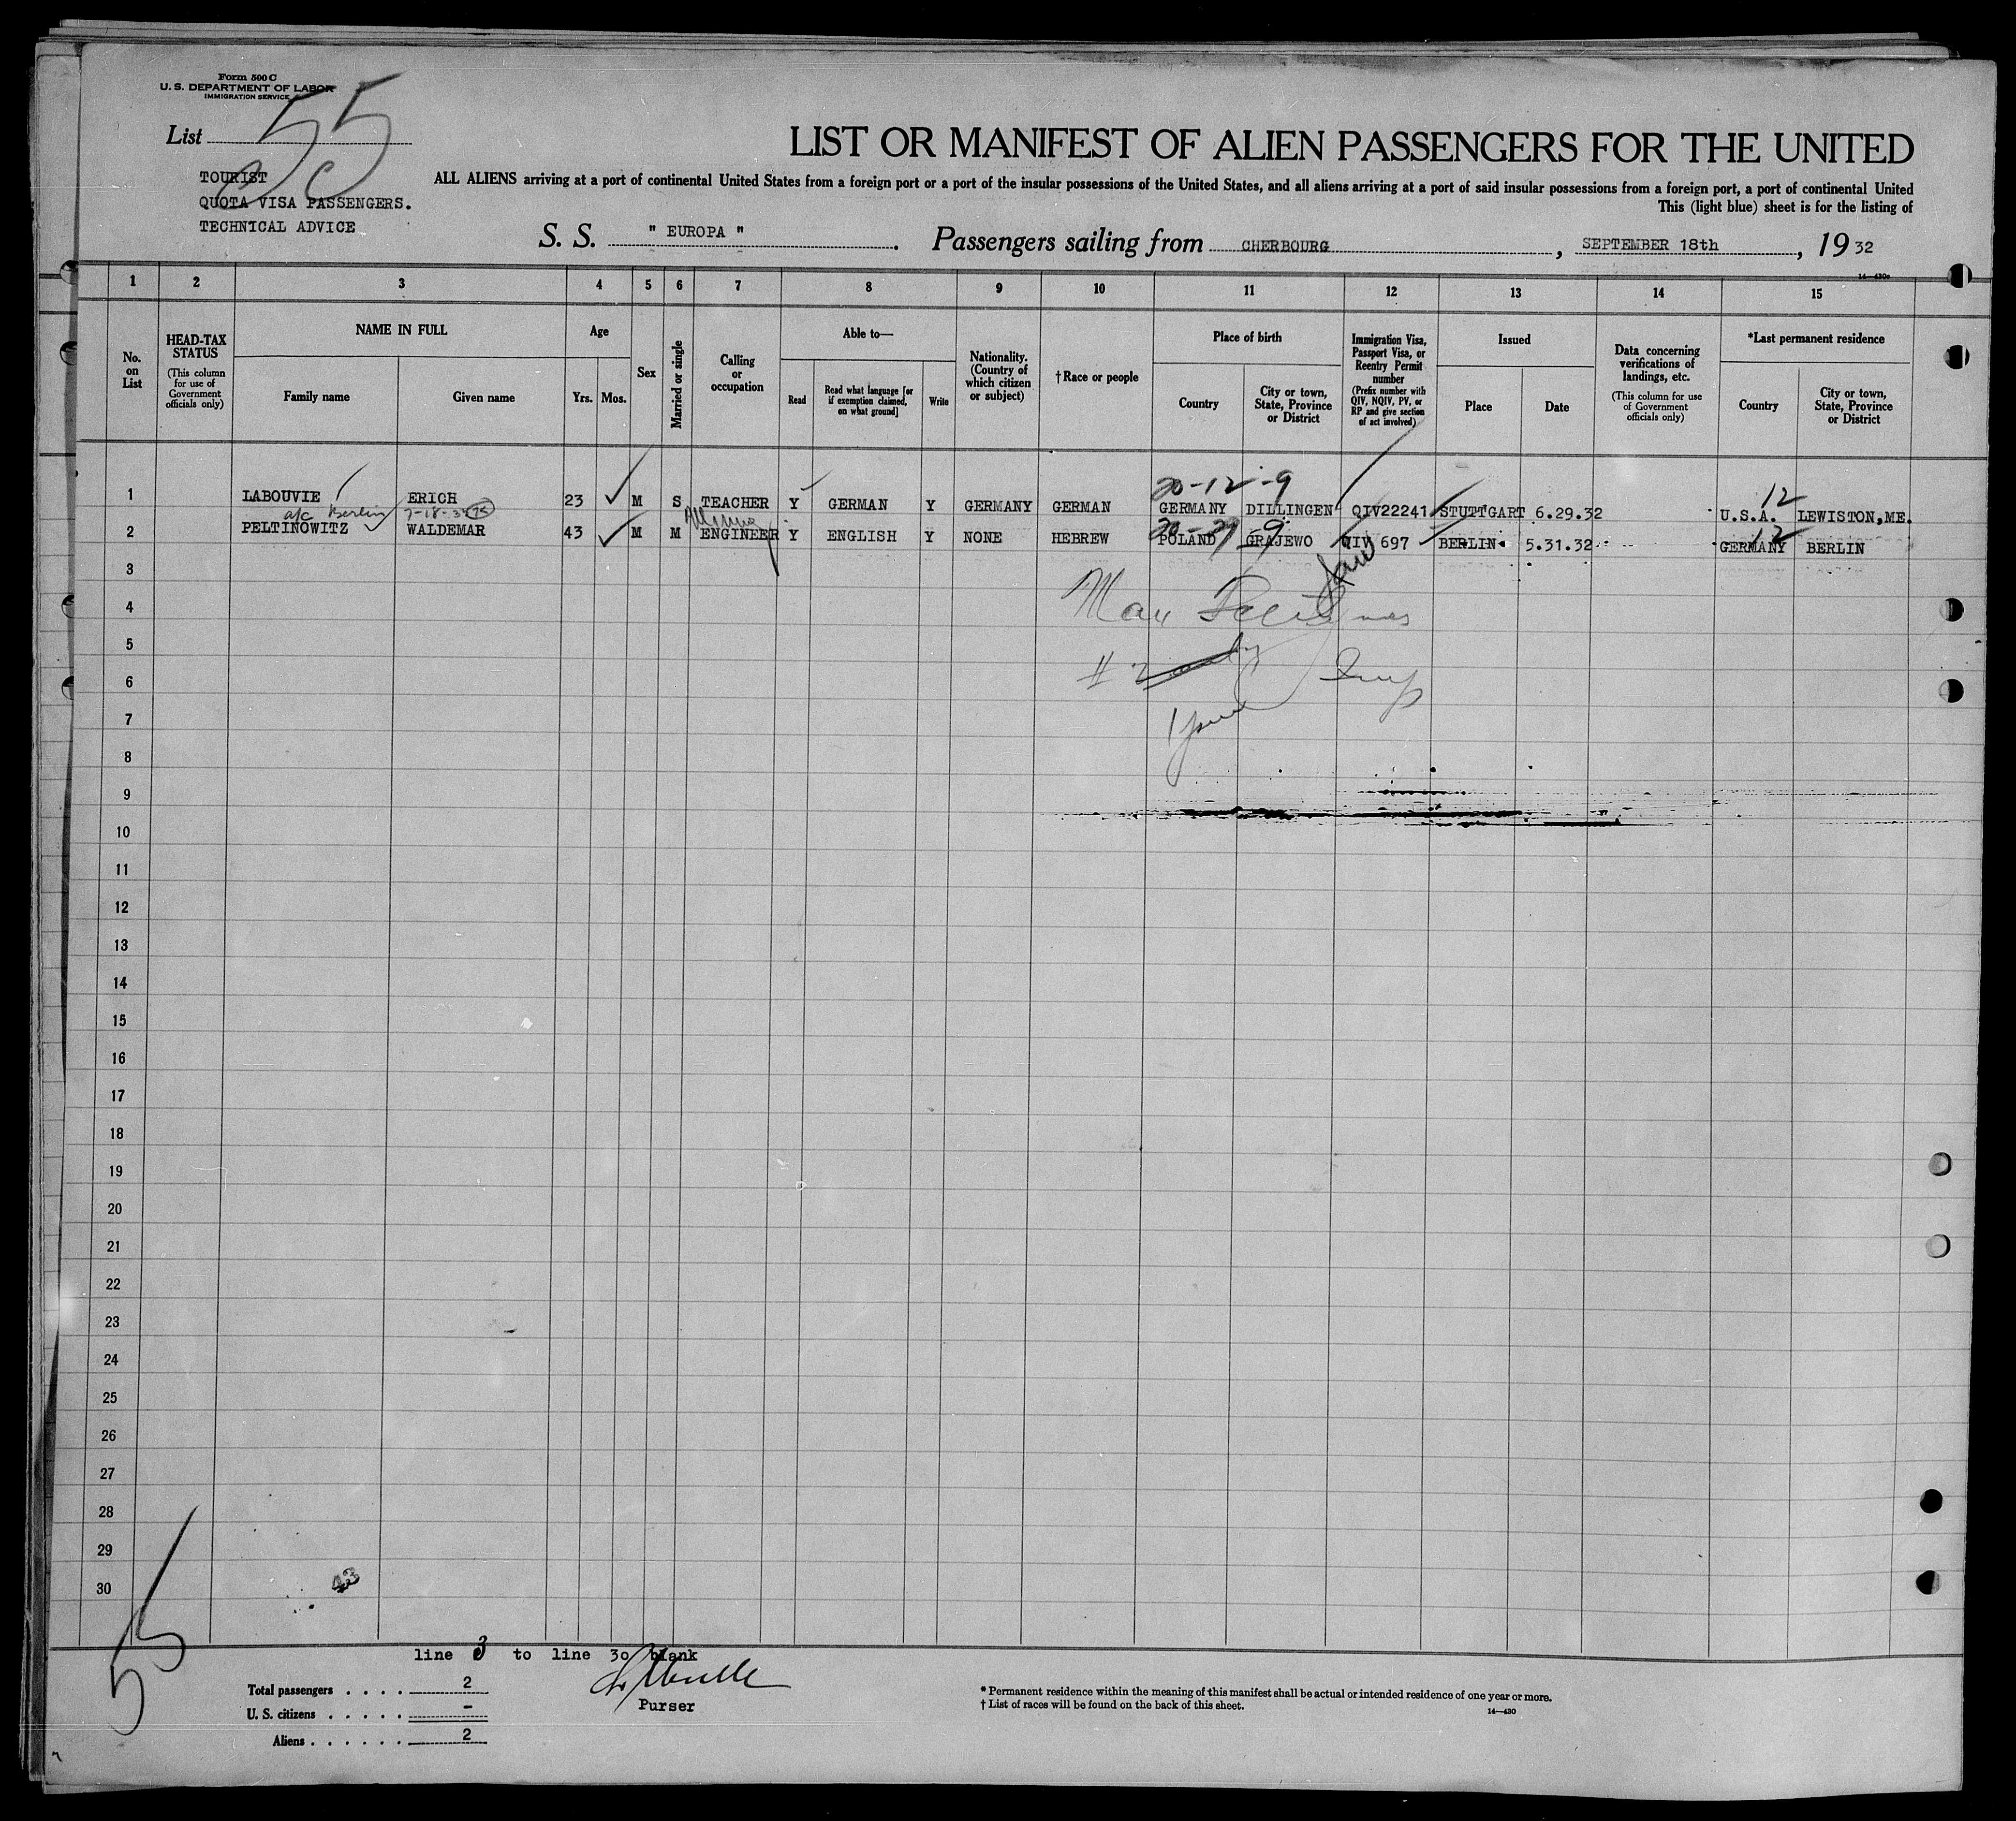 Form 500 C
U. S. DEPARTMENT OF LABOR
IMMIGRATION SERVICE
List 55
TOURIST
QUOTA VISA PASSENGERS.
TECHNICAL ADVICE
LIST OR MANIFEST OF ALIEN PASSENGERS FOR THE UNITED
ALL ALIENS arriving at a port of continental United States from a foreign port or a port of the insular possessions of the United States, and all aliens arriving at a port of said insular possessions from a foreign port, a port of continental United
This (light blue) sheet is for the listing of
S. S. " EUROPA ". Passengers sailing from CHERBOURG, SEPTEMBER 18th, 1932
14—430c
1 2 3 4 5 6 7 8 9 10 11 12 13 14 15
No. on List
HEAD-TAX STATUS
(This column for use of Government officials only)
NAME IN FULL
Family name
Given name
Age
Yrs. Mos.
Sex
Married or single
Calling or occupation
Able to—
Read
Read what language [or if exemption claimed, on what ground]
Write
Nationality. (Country of which citizen or subject)
†Race or people
Place of birth
Country
City or town, State, Province or District
Immigration Visa, Passport Visa, or Reentry Permit number
(Prefix number with QIV, NQIV, PV, or RP and give section of act involved)
Issued
Place
Date
Data concerning verifications of landings, etc.
(This column for use of Government officials only)
*Last permanent residence
Country
City or town, State, Province or District
20-12-9 12
1 LABOUVIE ERICH 23 M S TEACHER Y GERMAN Y GERMANY GERMAN GERMANY DILLINGEN QIV22241 STUTTGART 6.29.32 U.S.A. LEWISTON,ME.
a/c Berlin
12
2 PELTINOWITZ WALDEMAR 43 M M ENGINEER Y ENGLISH Y NONE HEBREW POLAND GRAJEWO QIV 697 BERLIN 5.31.32 GERMANY BERLIN
3
4
5
# 2
6
7
8
9
10
11
12
13
14
15
16
17
18
19
20
21
22
23
24
25
26
27
28
29
30
43
55
line 3 to line 30 blank
Total passengers . . . . 2
U. S. citizens . . . . . -
Aliens . . . . . . 2
Purser
* Permanent residence within the meaning of this manifest shall be actual or intended residence of one year or more.
† List of races will be found on the back of this sheet.
14—430